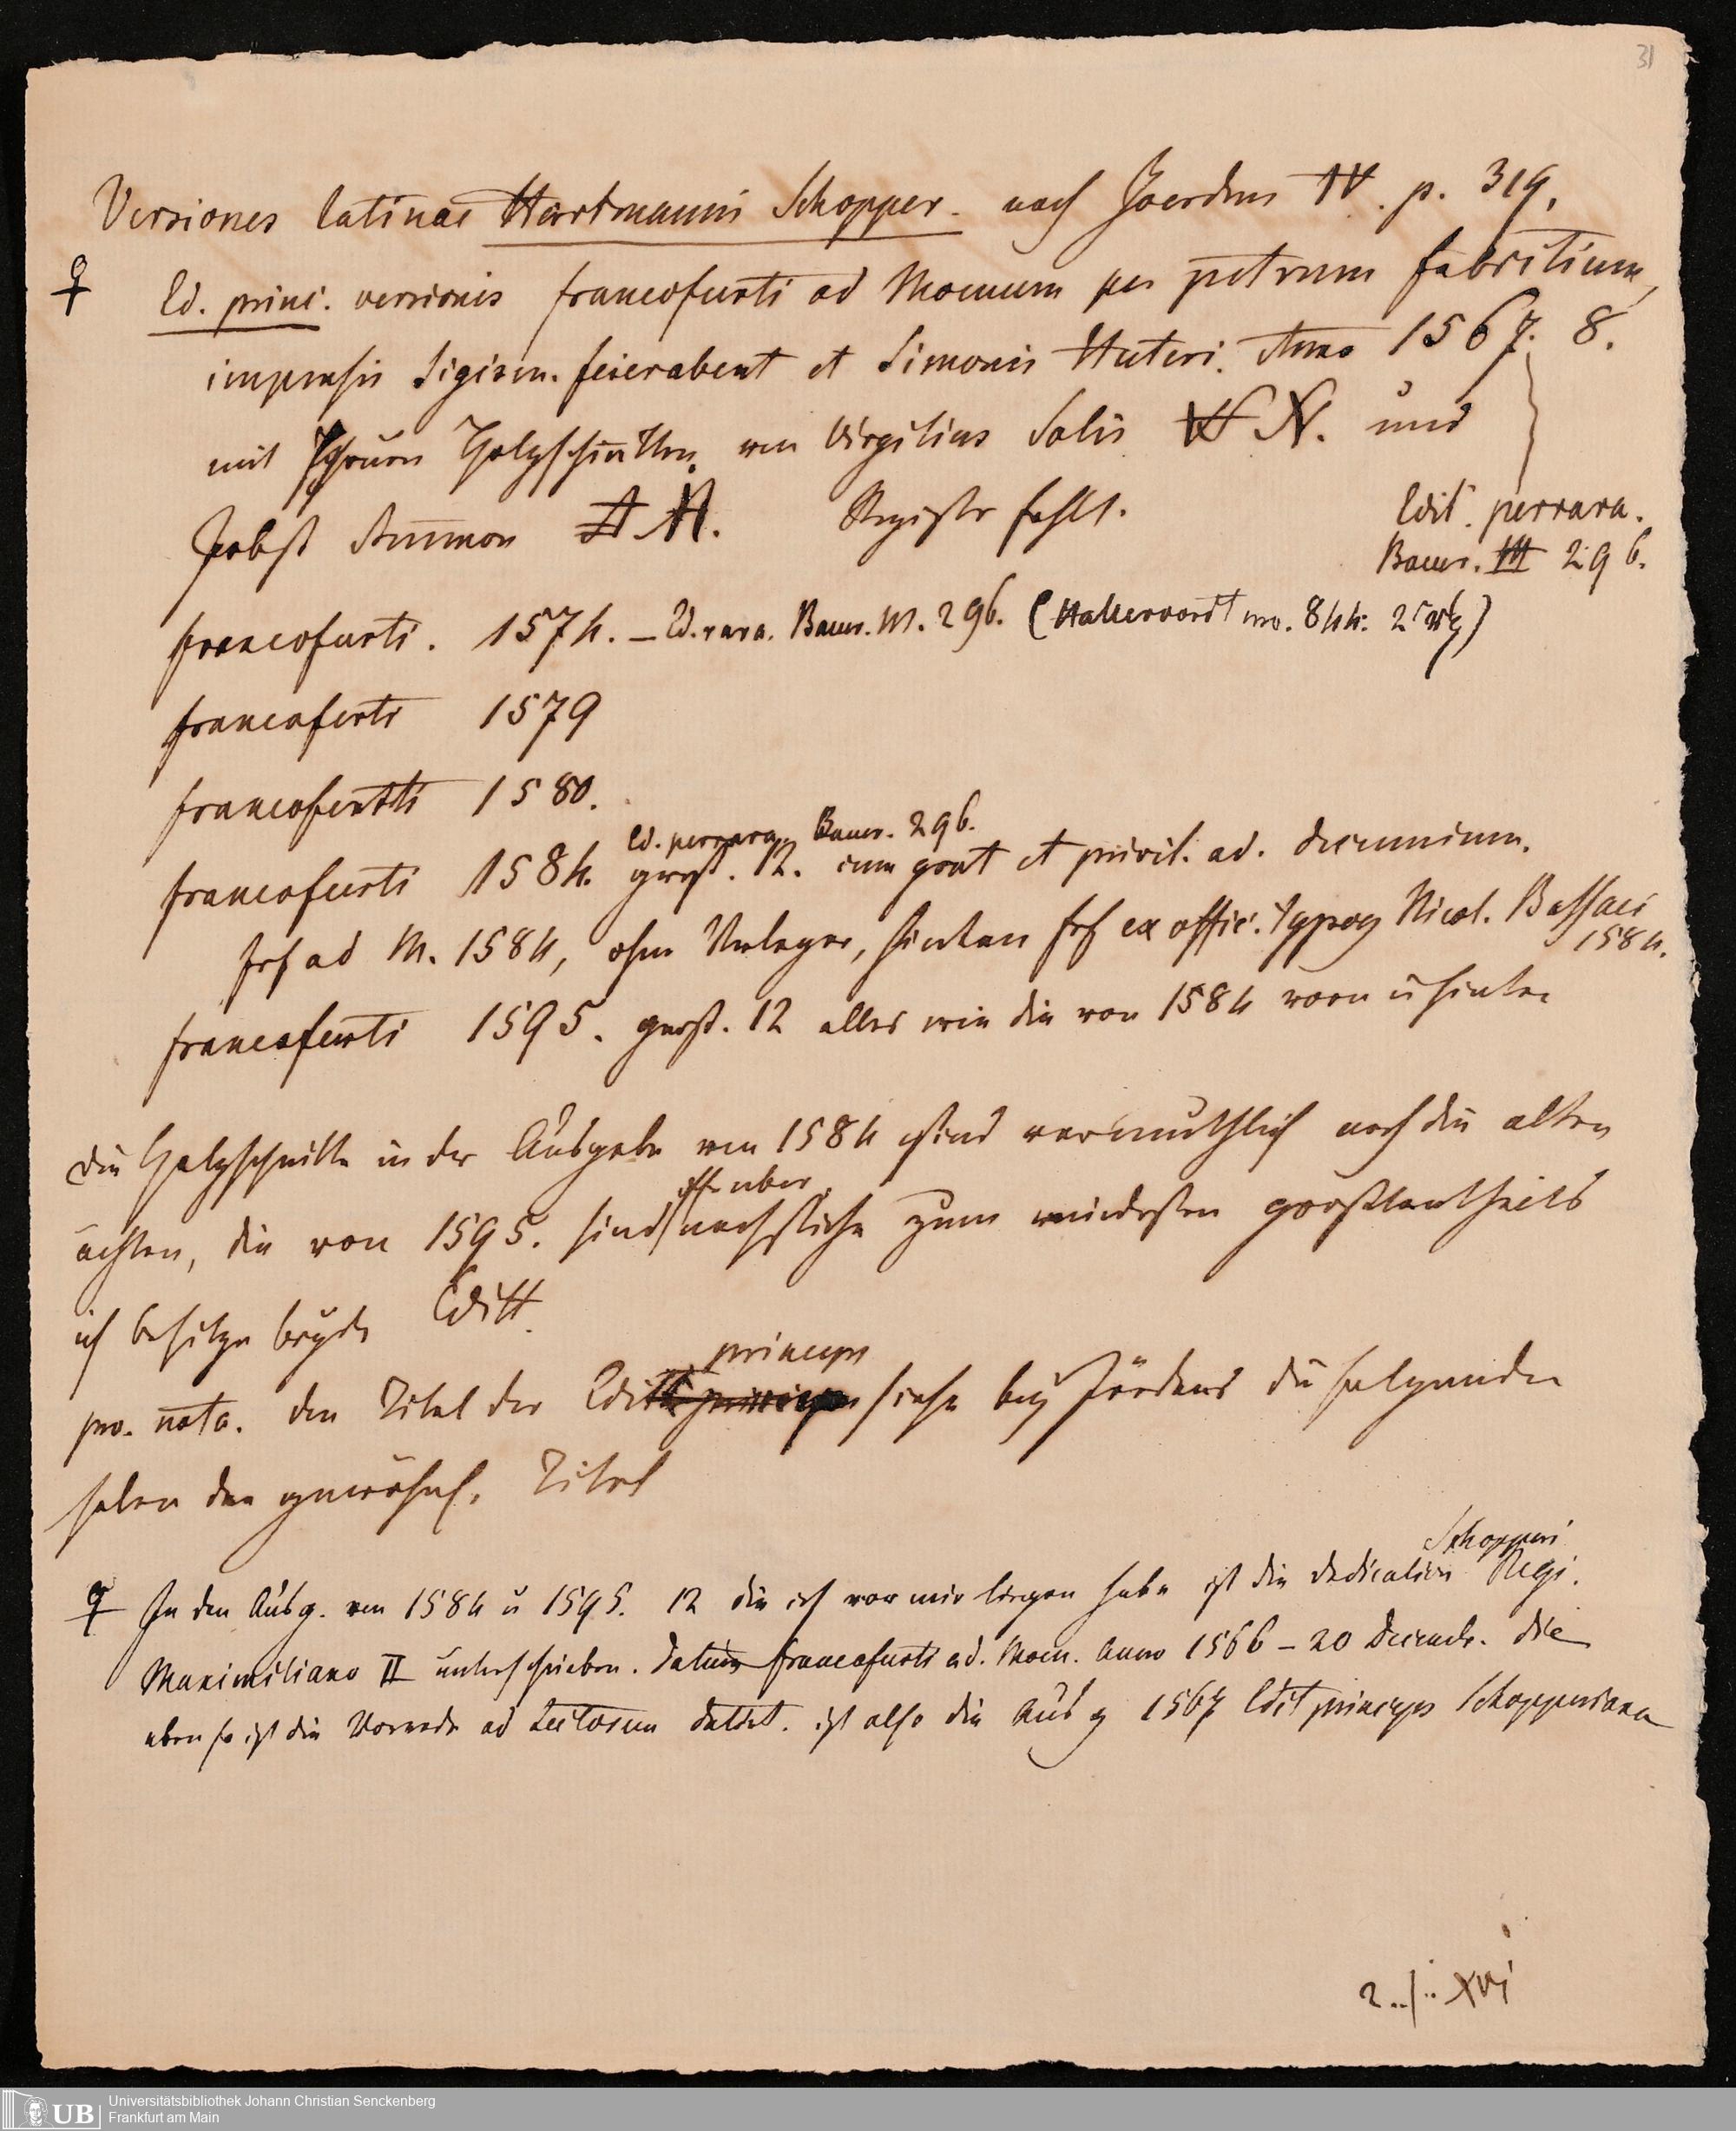 31
Versiones latinae Hartmanni Schopper. nach Joerdens IV. p. 319.
Ed. princ. versionis francofurti ad Moenum per petrum fabritium,
impensis Sigism. feierabent et Simonis Huteri. Anno 1567. 8.
mit Holzschnitten von Virgilius Solis und
Jobst Ammon Register fehlt.
Edit. perrara.
Bauer. III 296.
francofurti. 1574. – Ed. rara. Bauer. III. 296. (Hallervordt no. 844.
francofurti 1579
francofurti 1580.
Ed. perrara Bauer. 296.
francofurti 1584. 12. cum grat et privil. ad. decennium.
frf ad M. 1584, ohne Verleger, hinten frf ex offic. typog Nicol. Bassaei
1584.
francofurti 1595. 12 alles wie die von 1584 vorn u hinten
die Holzschnitte in der Ausgabe von 1584 sind vermuthlich noch die alten
offenbar
ächten, die von 1595. sind nachstiche zum mindesten gröstentheils
ich besitze beyde Editt.
princeps
pro. nota. den Titel der Edit siehe bey Jördens die folgenden
haben den gewöhnl. Titel
Schopperi
In den Ausg. von 1584 u 1595. 12 die ich vor mir liegen habe ist die dedication Regi.
Maximiliano II unterschrieben. Datum francofurti ad. Moen. Anno 1566 – 20 Decembr. die
eben so ist die Vorrede ad Lectorem datirt. ist also die Ausg 1567 Edit princeps Schopperiana
Universitätsbibliothek Johann Christian Senckenberg
UB
Frankfurt am Main